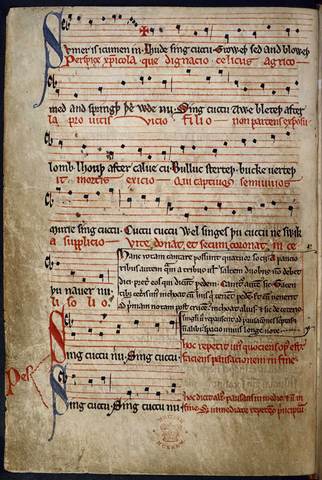 Svmer is icumen in. Lhude sing cuccu. Groweþ sed and bloweþ
Perspice xp̄icola que dignacio celicus agrico
med and springþ þe wde nu. Sing cuccu Awe bleteþ after
la pro uitis vicio filio non parcens exposu
lomb. lhouþ after calue cu. Bulluc sterteþ. bucke uerteþ
it mortis exicio Qui captiuos semiuiuos
murie sing cuccu. Cuccu cuccu Wel singes þu cuccu ne swik
a supplicio Vite donat et secum coronat in ce
þu nauer nu.
li solio.
Hanc rotam cantare possunt quatuor socii. A paucio
ribus autem quā a tribus uł saltem duobus nō debet
dici p̄ter eos qui dicūt pedem. Canitur autem sic. Tacen
tibus ceteris unus inchoat cū hiis qui tenent pedē. Et cū uenerit
ad primam notam post crucē, inchoat alius, et sic de ceteris.
singuli uero repausent ad pausaciones scriptas
nō alibi spacio unius longe note.
Sing cuccu nu. Sing cuccu.
hoc repetit un quociens op est
faciens pausacionem in fine.
Pes
Sing cuccu. Sing cuccu nu
hoc dicit alius pausans in medio et nō in
fine. Sed immediate repetens principium